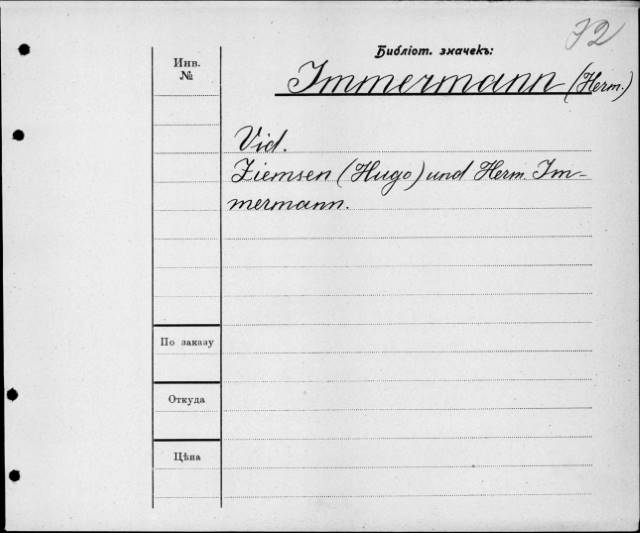 72
Библіот. значекъ:
Инв.
№
Immermann (Herm.)
Vid.
Ziemsen (Hugo) und Herm. Im-
mermann.
По заказу
Откуда
Цѣна